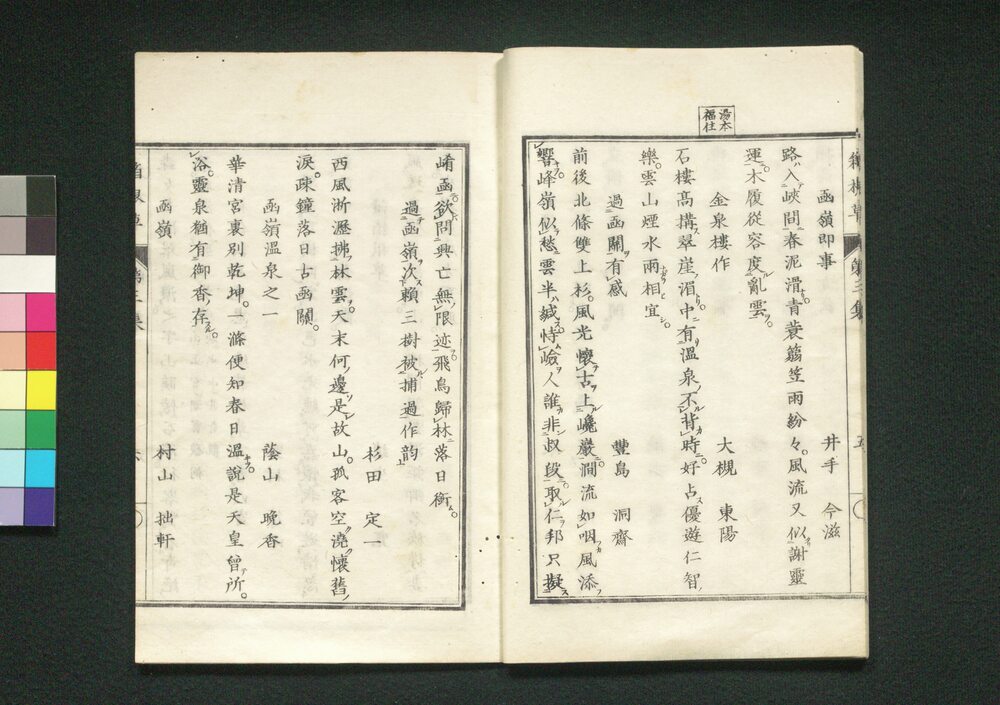 湯本
福住
函嶺即事　井手　今滋
路入峽問春泥滑青蓑蒻笠雨紛々風流又似謝靈
運木履從容度亂雲
金泉樓作　大槻　東陽
石樓高構翠崖湄中有溫泉不背時好占優遊仁智
樂雲山煙水兩相宜
過函關有感　豐島　洞齋
前後北條雙上杉風光懷古上巉巖澗流如咽風添
響峰嶺似愁雲半緘恃嶮人誰非叔段取仁邦只擬
崤函欲問興亡無限迹飛鳥歸林落日銜
過函嶺次賴三樹被捕過作韵　杉田　定一
西風淅瀝拂林雲天末何邊是故山孤客空澆懷舊
淚疎鐘落日古函關
函嶺溫泉之一　蔭山　晚香
華清宮裏別乾坤一滌便知春日溫說是天皇曾所
浴靈泉猶有御香存
函嶺　村山　拙軒
第三集
五